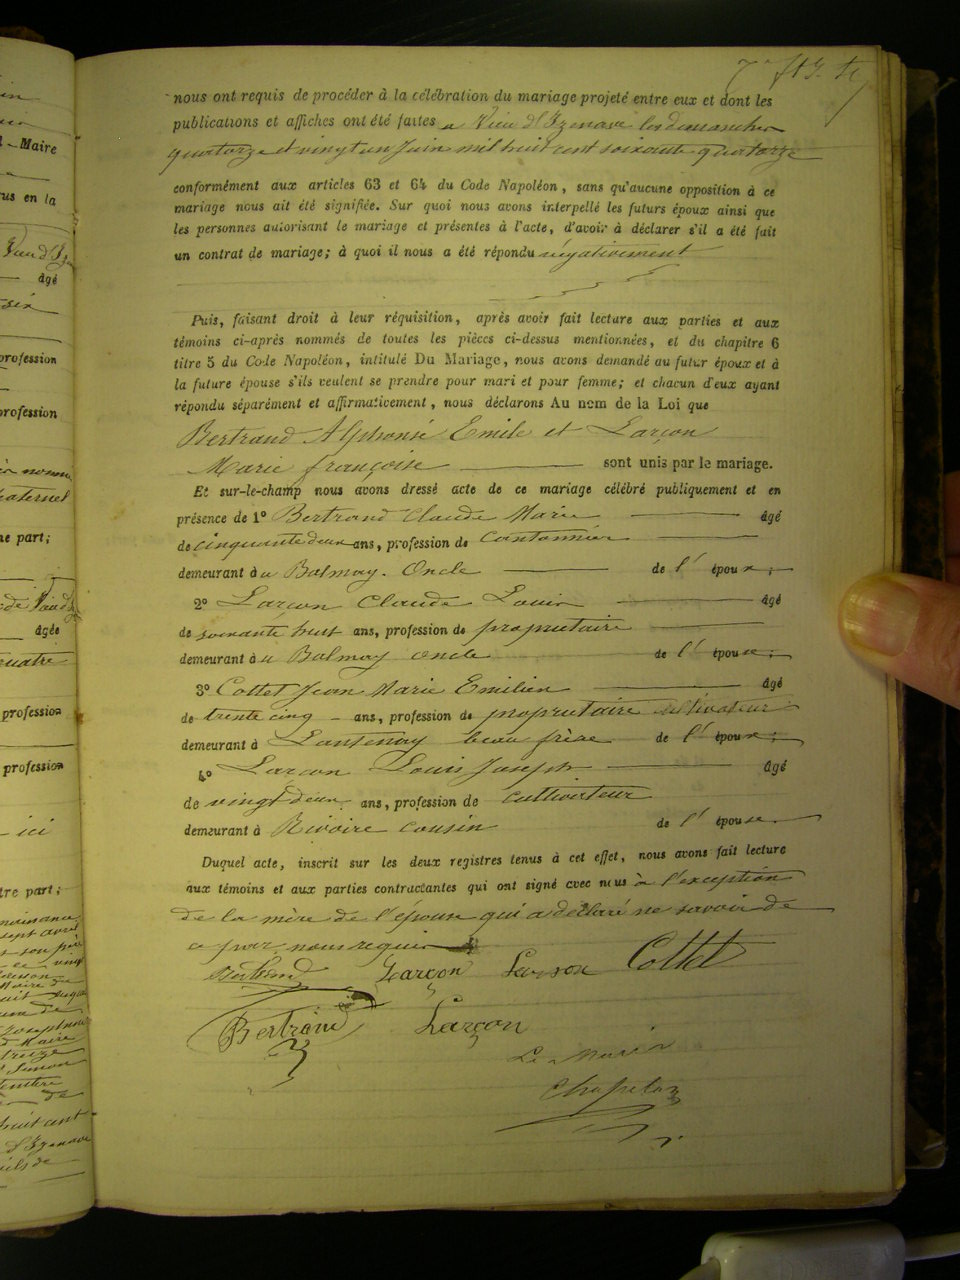 nous ont requis de procéder à la célébration du mariage projeté entre eux et dont les
publications et affiches ont été faites a Vieu d'Izenave les dimanches
quatorze et vingt un Juin mil huit cent soixante quatorze
conformément aux articles 63 et 64 du Code Napoléon, sans qu'aucune opposition à ce
mariage nous ait été signifiée. Sur quoi nous avons interpellé les futurs époux ainsi que
les personnes autorisant le mariage et présentes à l'acte, d'avoir à déclarer s'il a été fait
un contrat de mariage; à quoi il nous a été répondu négativement
Puis, faisant droit à leur réquisition, après avoir fait lecture aux parties et aux
témoins ci-après nommés de toutes les pièces ci-dessus mentionnées, et du chapitre 6
titre 5 du Code Napoléon, intitulé Du Mariage, nous avons demandé au futur époux et à
la future épouse s'ils veulent se prendre pour mari et pour femme; et chacun d'eux ayant
répondu séparément et affirmativement, nous déclarons Au nom de la Loi que
Bertrand Alphonse Emile et Larçon
Marie françoise sont unis par le mariage.
Et sur-le-champ nous avons dressé acte de ce mariage célébré publiquement et en
présence de 1° Bertrand Claude Marie âgé
de cinquante deux ans, profession de Cantonnier
demeurant à Balmay. Oncle de l'époux;
2° Larçon Claude Louis âgé
de soixante huit ans, profession de propriétaire
demeurant à Balmay oncle de l'épouse;
3° Cottet Jean Marie Emilien âgé
de trente cinq ans, profession de propriétaire cultivateur
demeurant à Lantenay beau frère de l'époux;
4° Larçon Louis Joseph âgé
de vingt deux ans, profession de cultivateur
demeurant à Rivoire cousin de l'épouse.
Duquel acte, inscrit sur les deux registres tenus à cet effet, nous avons fait lecture
aux témoins et aux parties contractantes qui ont signé avec nous à l'exception
de la mère de l'épouse qui a déclaré ne savoir de
ce par nous requis
Bertrand Larçon Larçon Cottet
Bertrand Larçon
Le Maire
Chapelan